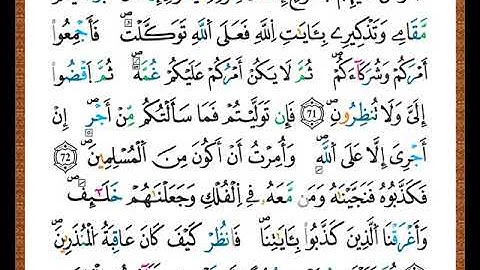 مَّقَامِى وَتَذْكِيرِى بِـَٔايَـٰتِ ٱللَّهِ فَعَلَى ٱللَّهِ تَوَكَّلْتُ فَأَجْمِعُوٓا۟
أَمْرَكُمْ وَشُرَكَآءَكُمْ ثُمَّ لَا يَكُنْ أَمْرُكُمْ عَلَيْكُمْ غُمَّةً ثُمَّ ٱقْضُوٓا۟
إِلَىَّ وَلَا تُنظِرُونِ 71 فَإِن تَوَلَّيْتُمْ فَمَا سَأَلْتُكُم مِّنْ أَجْرٍ إِنْ
أَجْرِىَ إِلَّا عَلَى ٱللَّهِ وَأُمِرْتُ أَنْ أَكُونَ مِنَ ٱلْمُسْلِمِينَ 72
فَكَذَّبُوهُ فَنَجَّيْنَـٰهُ وَمَن مَّعَهُۥ فِى ٱلْفُلْكِ وَجَعَلْنَـٰهُمْ خَلَـٰٓئِفَ
وَأَغْرَقْنَا ٱلَّذِينَ كَذَّبُوا۟ بِـَٔايَـٰتِنَا فَٱنظُرْ كَيْفَ كَانَ عَـٰقِبَةُ ٱلْمُنذَرِينَ